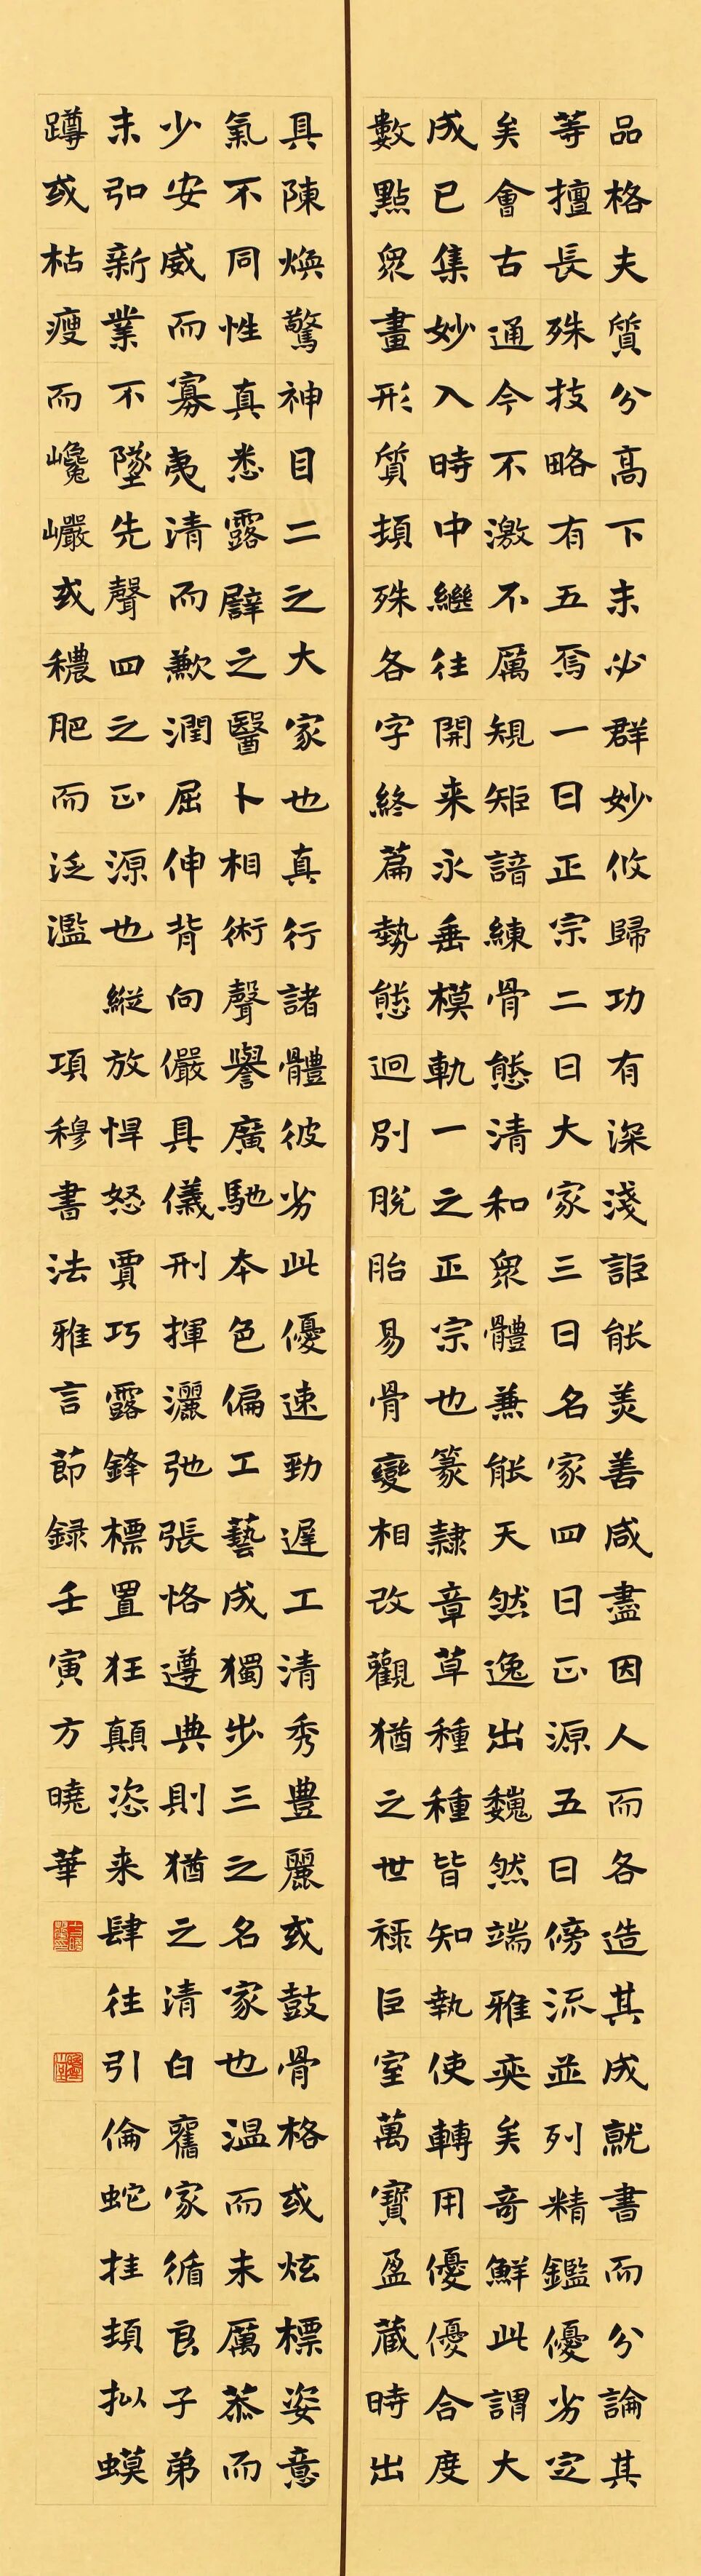 品格夫質分高下未必群妙攸歸功有深淺詎能美善咸盡因人而各造其成就書而分論其
等擅長殊技略有五焉一曰正宗二曰大家三曰名家四曰正源五曰傍流並列精鑑優劣定
矣會古通今不激不厲規矩諳練骨態清和衆體兼能天然逸出巍然端雅奕矣奇鮮此謂大
成已集妙入時中繼往開来永垂模軌一之正宗也篆隷章草種種皆知執使轉用優優合度
數點衆畫形質頓殊各字終篇勢態迥別脫胎易骨變相改觀猶之世祿巨室萬寶盈藏時出
具陳煥驚神目二之大家也真行諸體彼劣此優速勁遲工清秀豊麗或鼓骨格或炫標姿意
氣不同性真悉露譬之醫卜相術聲譽廣馳本色偏工藝成獨步三之名家也溫而未厲恭而
少安威而寡夷清而歉潤屈伸背向儼具儀刑揮灑弛張恪遵典則猶之清白舊家循良子弟
未弘新業不墜先聲四之正源也縱放悍怒賈巧露鋒標置狂顛恣来肆往引倫蛇挂頓拟蟆
蹲或枯瘦而巉巖或穠肥而泛濫 項穆書法雅言節録壬寅方曉華